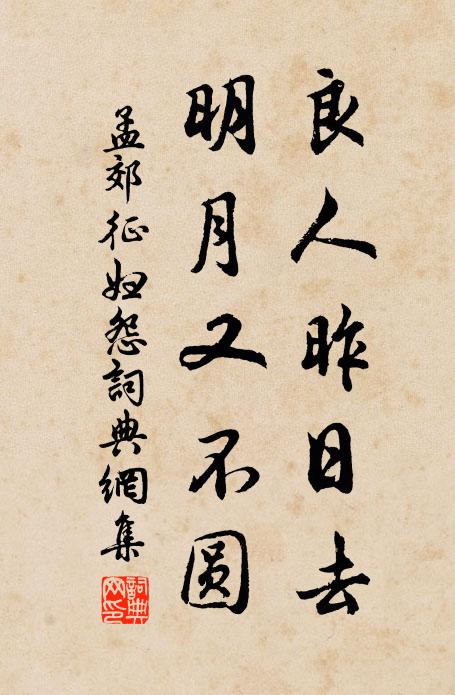 良人昨日去
明月又不圆
孟郊征妇怨詞典網集
詞典网印